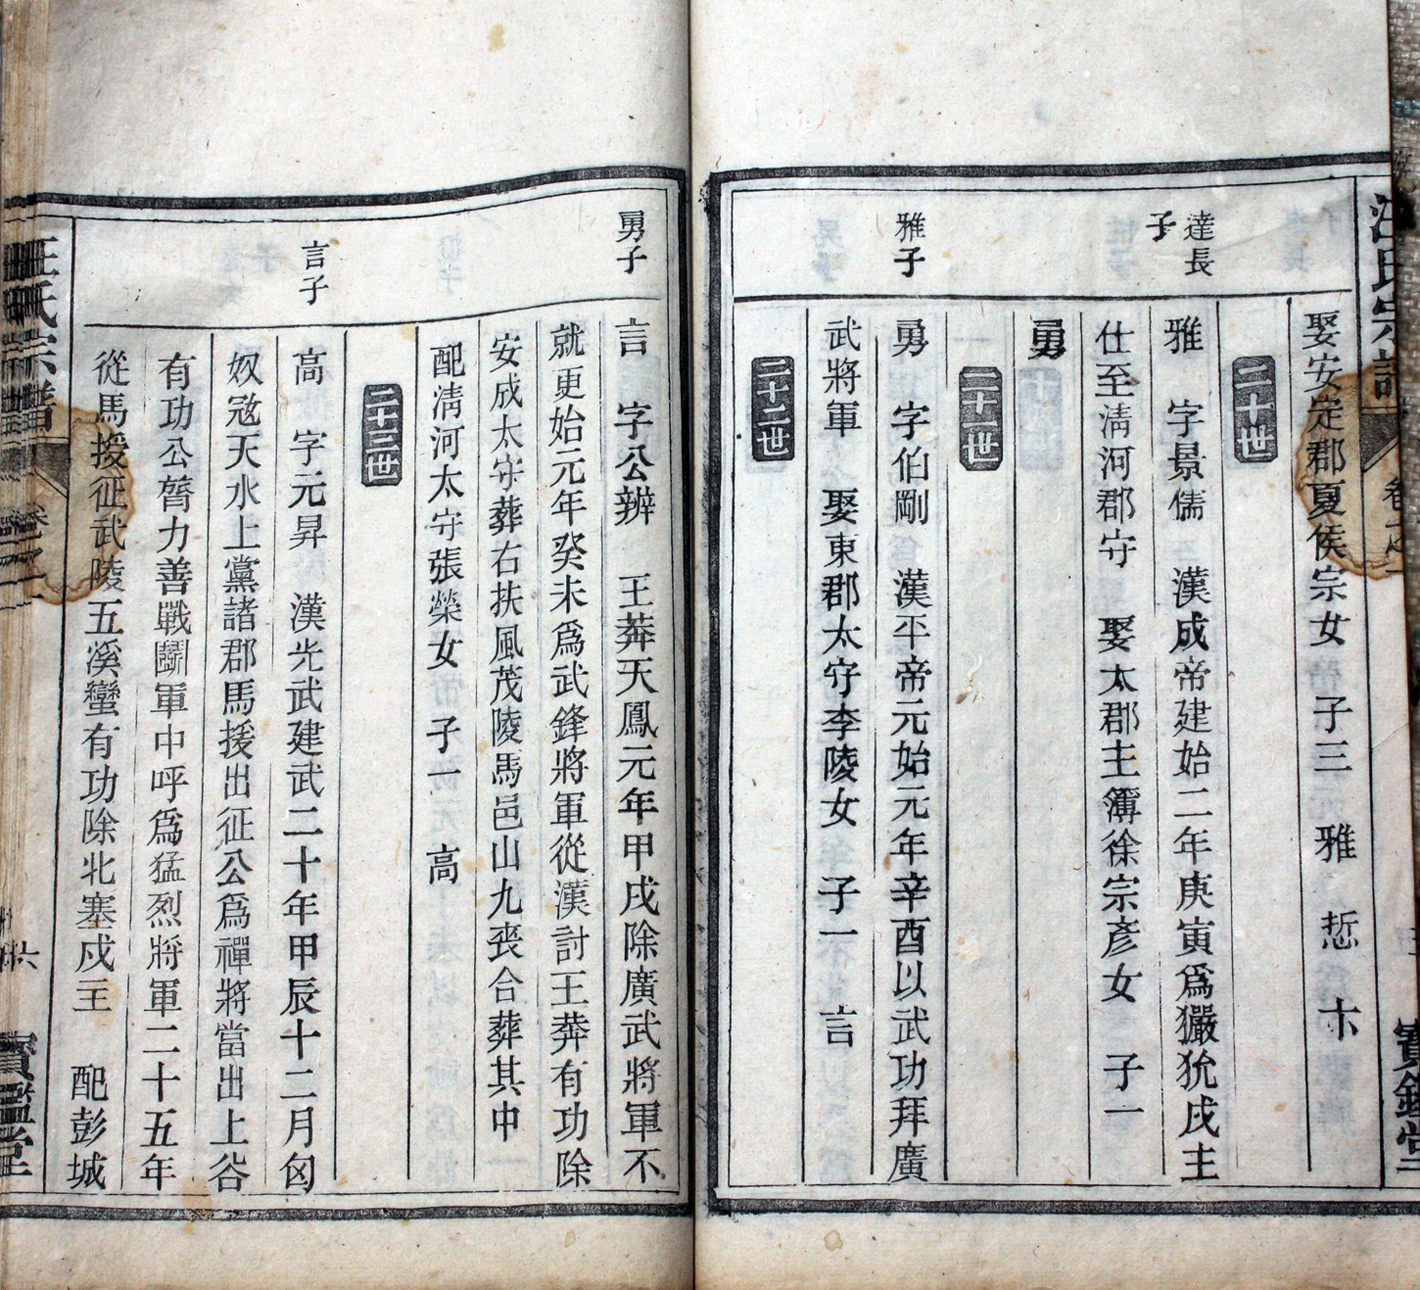 汪氏宗譜
卷之一
寶鑑堂
娶安定郡夏侯宗女 子三 雅 悊 卞
二十世
達長子
雅 字景儒 漢成帝建始二年庚寅爲玁狁戌主
仕至淸河郡守 娶太郡主簿徐宗彥女 子一
勇
二十一世
雅子
勇 字伯剛 漢平帝元始元年辛酉以武功拜廣
武將軍 娶東郡太守李陵女 子一 言
二十二世
勇子
言 字公辨 王莽天鳳元年甲戌除廣武將軍不
就更始元年癸未爲武鋒將軍從漢討王莽有功除
安成太守葬右扶風茂陵馬邑山九喪合葬其中
配淸河太守張榮女 子一 高
二十三世
言子
高 字元昇 漢光武建武二十年甲辰十二月匈
奴寇天水上黨諸郡馬援出征公爲禆將當出上谷
有功公膂力善戰鬭軍中呼爲猛烈將軍二十五年
從馬援征武陵五溪蠻有功除北塞戍主 配彭城
汪氏宗譜
卷之一
六
寶鑑堂